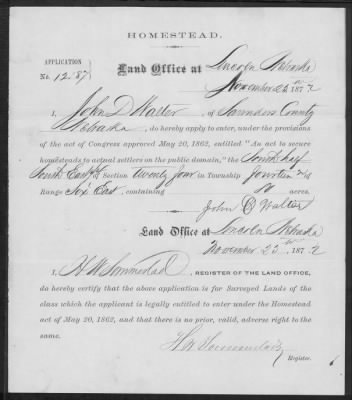 HOMESTEAD.
APPLICATION
Land Office at Lincoln Nebraska
No. 12187
November 25th 1872
I, John D Walter, of Saunders County
Nebraska, do hereby apply to enter, under the provisions
of the act of Congress approved May 20, 1862, entitled "An act to secure
homesteads to actual settlers on the public domain," the South half
South East ¼ of Section Twenty four in Township fourteen N of
Range Six East, containing 80 acres.
John D Walter
Land Office at Lincoln Nebraska
November 25th, 1872
I, REGISTER OF THE LAND OFFICE,
do hereby certify that the above application is for Surveyed Lands of the
class which the applicant is legally entitled to enter under the Homestead
act of May 20, 1862, and that there is no prior, valid, adverse right to the
same.
Register.